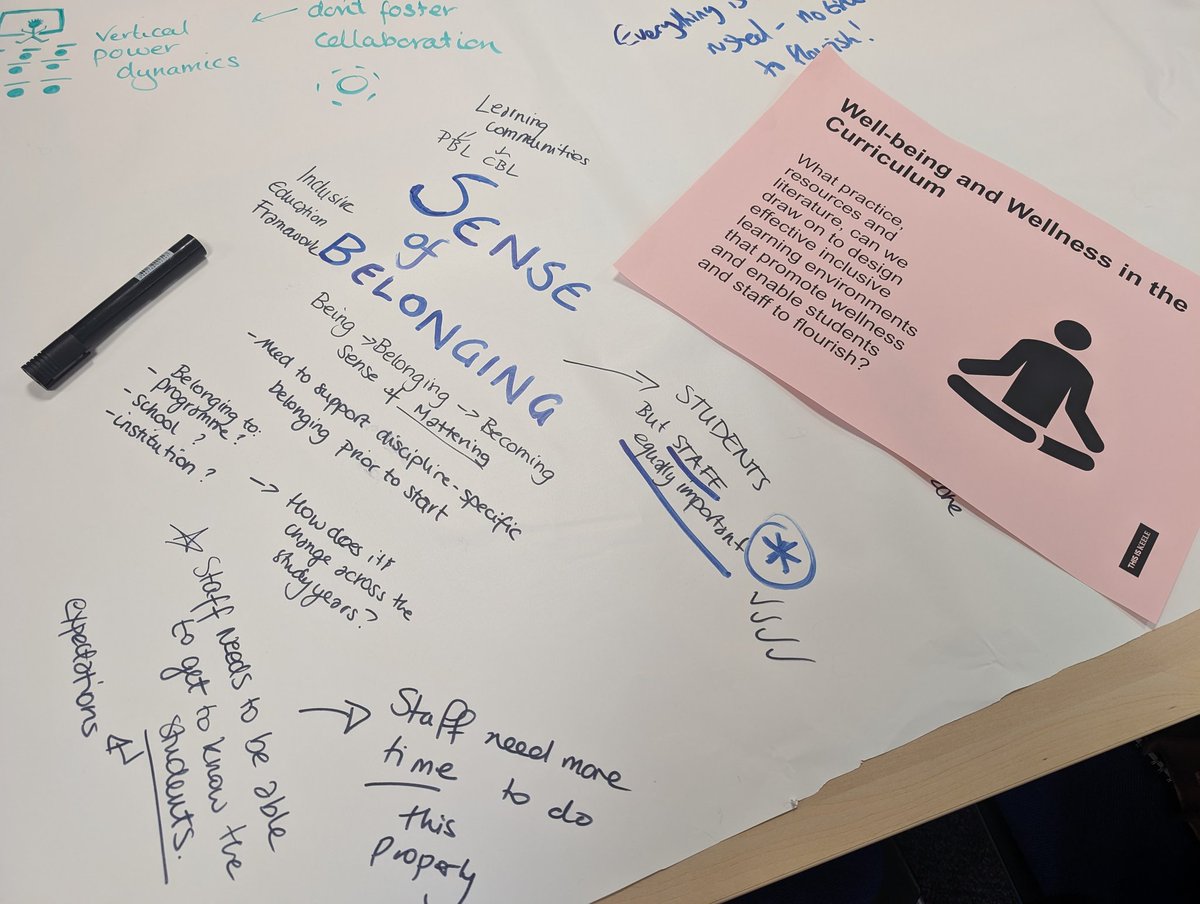 vertical
power
dynamics
dont foster
collaboration
Everything is
rushed - no time
to flourish!
Learning
communities
PBL
CBL
Inclusive
Education
Framework
SENSE
of
BELONGING
Being → Belonging → Becoming
Sense of Mattering
- Need to support discipline-specific
belonging prior to start
- Belonging to:
programme?
- school?
- institution?
→ How does it
change across the
study years?
STUDENTS
But STAFF
equally important
*
✓✓✓✓
☆ Staff needs to be able
to get to know the
students.
expectations
→ Staff need more
time to do
this
properly
Well-being and Wellness in the
Curriculum
What practice,
resources and
literature, can we
draw on to design
effective inclusive
learning environments
that promote wellness
and enable students
and staff to flourish?
THIS IS KEELE